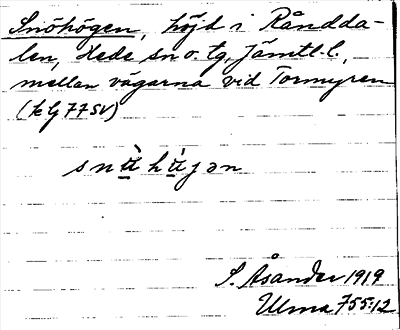 Snöhögen, höjd i Råndda-
len, Hede sn o. tg, Jämtl. l.,
mellan vägarna vid Tormyren
(kg 77 SV)
S. Åsander 1919
Ulma 755:12